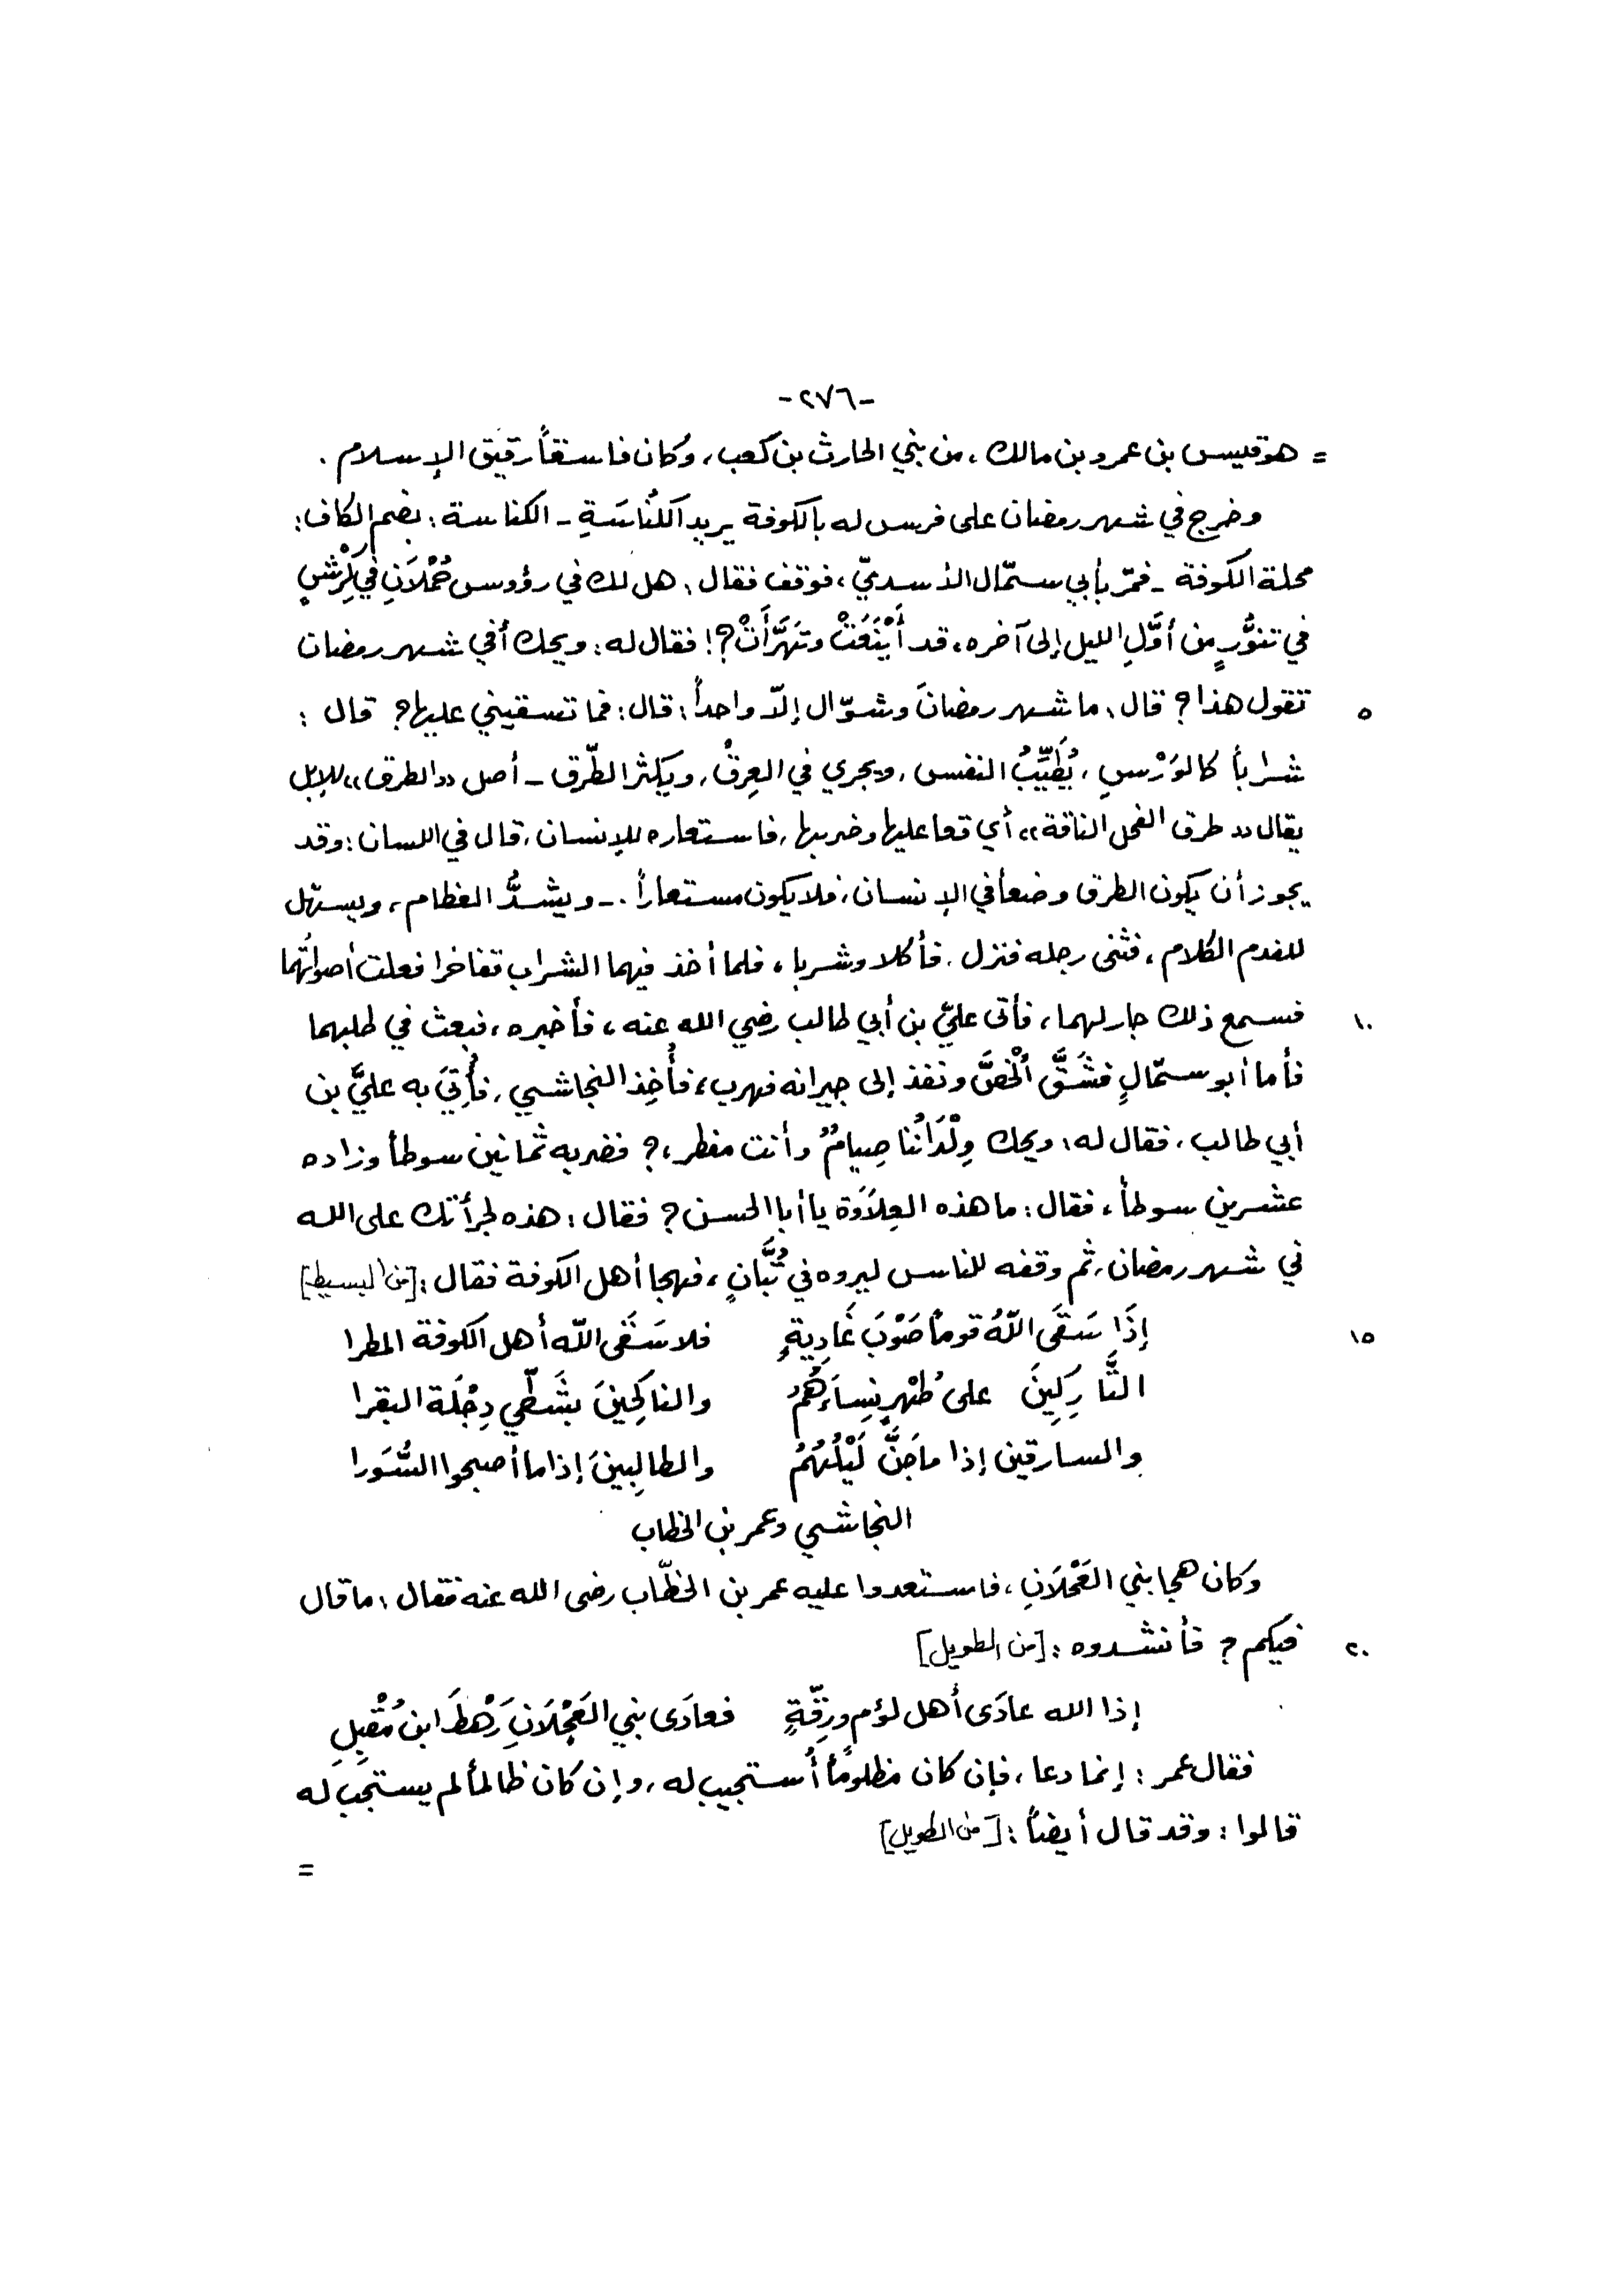 -٢٧٦-
= هو قيس بن عمرو بن مالك ، من بني الحارث بن كعب ، وكان فاسقاً رقيق الإسلام .
وخرج في شهر رمضان على فرس له بالكوفة يريد الكُنَاسَةِ - الكناسة : بضم الكاف :
محلة الكوفة - فمرّ بأبي سمّال الأسديّ ، فوقف فقال : هل لك في رؤوس حُمْلَانِ في كِرْشٍ
في تنُّورٍ من أوَّلِ الليل إلى آخره ، قد أَيْنَعَتْ وتَهَرَّأَتْ ؟! فقال له : ويحك أفي شهر رمضان
تقول هذا ؟ قال : ما شهر رمضانَ وشوّال إلّا واحداً ، قال : فما تسقيني عليها ؟ قال :
٥
شراباً كالوَرْسِ ، يُطَيِّبُ النفس ، ويجري في العِرقْ ، ويكثر الطّرق - أصل «الطرق» للإبل
يقال «طرق الفحل الناقة» أي قعا عليها وضربها ، فاستعاره للإنسان ، قال في اللسان : وقد
يجوز أن يكون الطرق وضعاً في الإنسان ، فلا يكون مستعاراً . - ويشدُّ العظام ، ويسهّل
للفدم الكلام ، فثنى رجله فنزل . فأكلا وشربا ، فلما أخذ فيهما الشراب تفاخرا فعلت أصواتُهما
فسمع ذلك جار لهما ، فأتى عليّ بن أبي طالب رضي الله عنه ، فأخبره ، فبعث في طلبهما
١٠
فأما أبو سمّالٍ فشَقَّ الْخُصَّ ونفذ إلى جيرانه فهرب ، فأُخِذ النجاشي ، فأُتِيَ به عليَّ بن
أبي طالب ، فقال له : ويحك وِلْدَانُنا صِيامٌ وأنت مفطر ، ؟ فضربه ثمانين سوطاً وزاده
عشرين سوطاً ، فقال : ما هذه العِلَاوَة يا أبا الحسن ؟ فقال : هذه لجرأتك على الله
في شهر رمضان ، ثم وقفه للناس ليروه في تُبَّانٍ ، فهجا أهل الكوفة فقال : [من البسيط]
إذَا سَقَى اللّهُ قوماً صَوْبَ غَادِيةٍ فلا سَقَى اللّه أهل الكوفة المطرا
١٥
التَّارِكِينَ على طُهْرٍ نِسَاءَهُمُ والناكِحِينَ بشَطَّي دِجْلَة البقرا
والسارقين إذا ما جَنَّ لَيْلُهُمُ والطالِبِينَ إذا ما أصبحوا السُّوَرا
النجاشي وعمر بن الخطاب
وكان هجا بني العَجْلَانِ ، فاستعدوا عليه عمر بن الخطّاب رضى الله عنه فقال : ما قال
فيكم ؟ فأنشدوه : [من الطويل]
٢٠
إذا الله عادَى أهل لؤم ورِقّةٍ فعادَى بني العَجْلَانِ رَهْطَ ابن مُقْبِلِ
فقال عمر : إنما دعا ، فإن كان مظلوماً أُستجيب له ، وإن كان ظالماً لم يستجب له
قالوا : وقد قال أيضاً : [من الطويل]
=